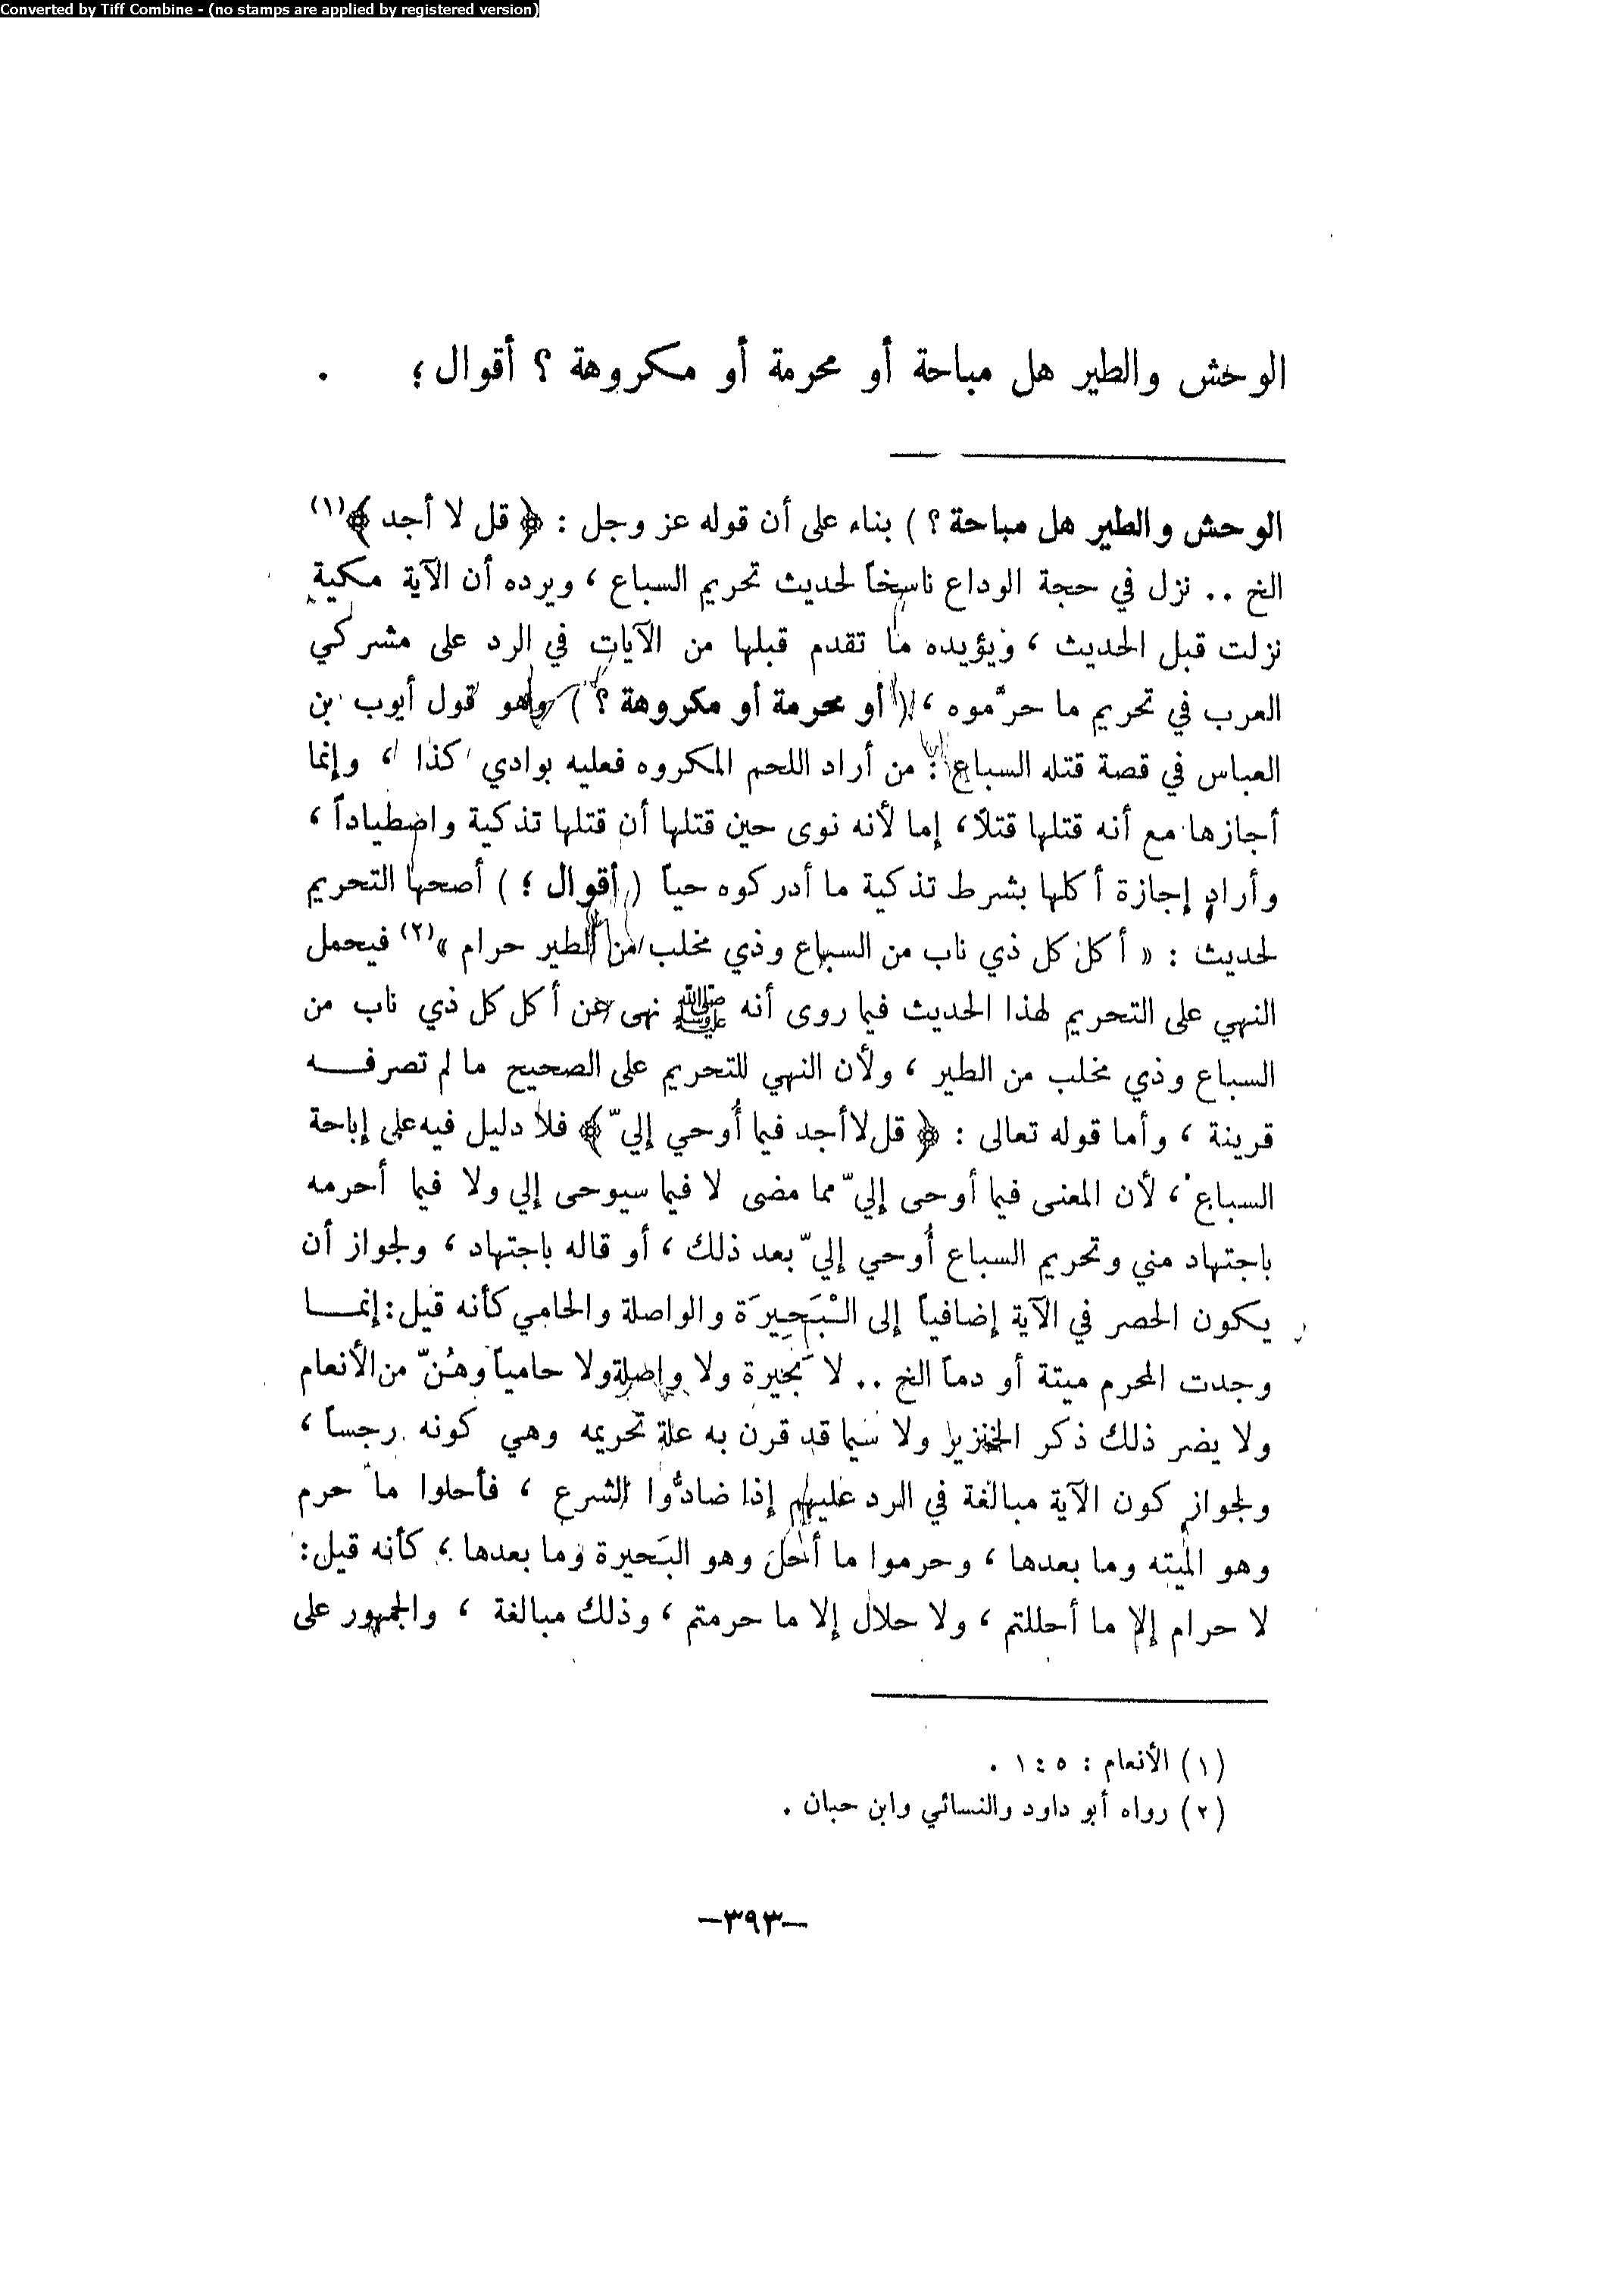 Converted by Tiff Combine - (no stamps are applied by registered version)
الوحش والطير هل مباحة أو محرمة أو مكروهة ؟ أقوال ؛ .
الوحش والطير هل مباحة ؟ ) بناء على أن قوله عز وجل : ﴿ قل لا أجد ﴾(١)
الخ .. نزل في حجة الوداع ناسخاً لحديث تحريم السباع ، ويرده أن الآية مكية
نزلت قبل الحديث ، ويؤيده ما تقدم قبلها من الآيات في الرد على مشركي
العرب في تحريم ما حرّموه ، ( أو محرمة أو مكروهة ؟ ) وهو قول أيوب بن
العباس في قصة قتله السباع : من أراد اللحم المكروه فعليه بوادي كذا ، وإنما
أجازها مع أنه قتلها قتلاً ، إما لأنه نوى حين قتلها أن قتلها تذكية واصطياداً ،
وأراد إجازة أكلها بشرط تذكية ما أدركوه حياً ( أقوال ؛ ) أصحها التحريم
لحديث : « أكل كل ذي ناب من السباع وذي مخلب من الطير حرام »(٢) فيحمل
النهي على التحريم لهذا الحديث فيما روى أنه ﷺ نهى عن أكل كل ذي ناب من
السباع وذي مخلب من الطير ، ولأن النهي للتحريم على الصحيح ما لم تصرفه
قرينة ، وأما قوله تعالى : ﴿ قل لا أجد فيما أُوحي إليّ ﴾ فلا دليل فيه على إباحة
السباع ، لأن المعنى فيما أوحى إليّ مما مضى لا فيما سيوحى إلي ولا فيما أحرمه
باجتهاد مني وتحريم السباع أُوحي إليّ بعد ذلك ، أو قاله باجتهاد ، ولجواز أن
يكون الحصر في الآية إضافياً إلى الْبَحِيرَة والواصلة والحامي كأنه قيل : إنما
وجدت المحرم ميتة أو دماً الخ .. لا بَحيرة ولا واصلة ولا حامياً وهُنّ من الأنعام
ولا يضر ذلك ذكر الخنزير ولا سيما قد قرن به علة تحريمه وهي كونه رجساً ،
ولجواز كون الآية مبالغة في الرد عليهم إذا ضادُّوا الشرع ، فأحلوا ما حرم
وهو الميته وما بعدها ، وحرموا ما أحل وهو البَحيرة وما بعدها ، كأنه قيل :
لا حرام إلا ما أحللتم ، ولا حلال إلا ما حرمتم ، وذلك مبالغة ، والجمهور على
(١) الأنعام : ١٤٥ .
(٢) رواه أبو داود والنسائي وابن حبان .
–٣٩٣–